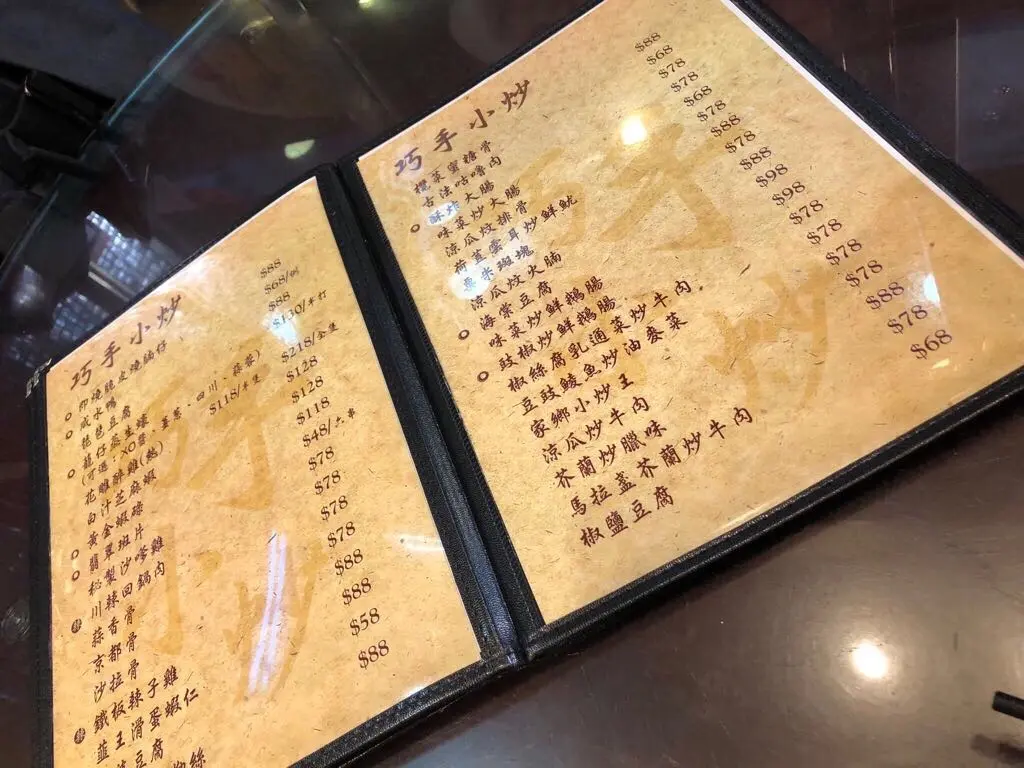 巧手小炒
即燒脆皮燒腩仔
咸水鴨
琵琶豆腐
龍仔蒸生蠔
花雕醉雞(熱)
白汁芝麻蝦
黃金蝦球
翡翠斑片
秘製沙爹雞
川辣回鍋肉
蒜香骨
京都骨
沙拉骨
鐵板辣子雞
韮王滑蛋蝦仁
豆腐
絲
$88
$68/例
$88
$130/半打
$218/全隻
$118/半隻
$128
$128
$118
$48/六串
$78
$78
$78
$78
$88
$88
$58
$88
巧手小炒
欖菜蜜糖骨
古法咕嚕肉
酥炸大腸
味菜炒大腸
涼瓜炆排骨
荷蓋雲耳炒鮮魷
粟米斑塊
涼瓜炆火腩
海棠豆腐
味菜炒鮮鵝腸
豉椒炒鮮鵝腸
椒絲腐乳通菜炒牛肉
豆豉鯪魚炒油麥菜
家鄉小炒王
涼瓜炒牛肉
芥蘭炒臘味
馬拉盞芥蘭炒牛肉
椒鹽豆腐
$88
$68
$78
$78
$68
$78
$88
$78
$88
$98
$98
$78
$78
$78
$78
$88
$78
$68